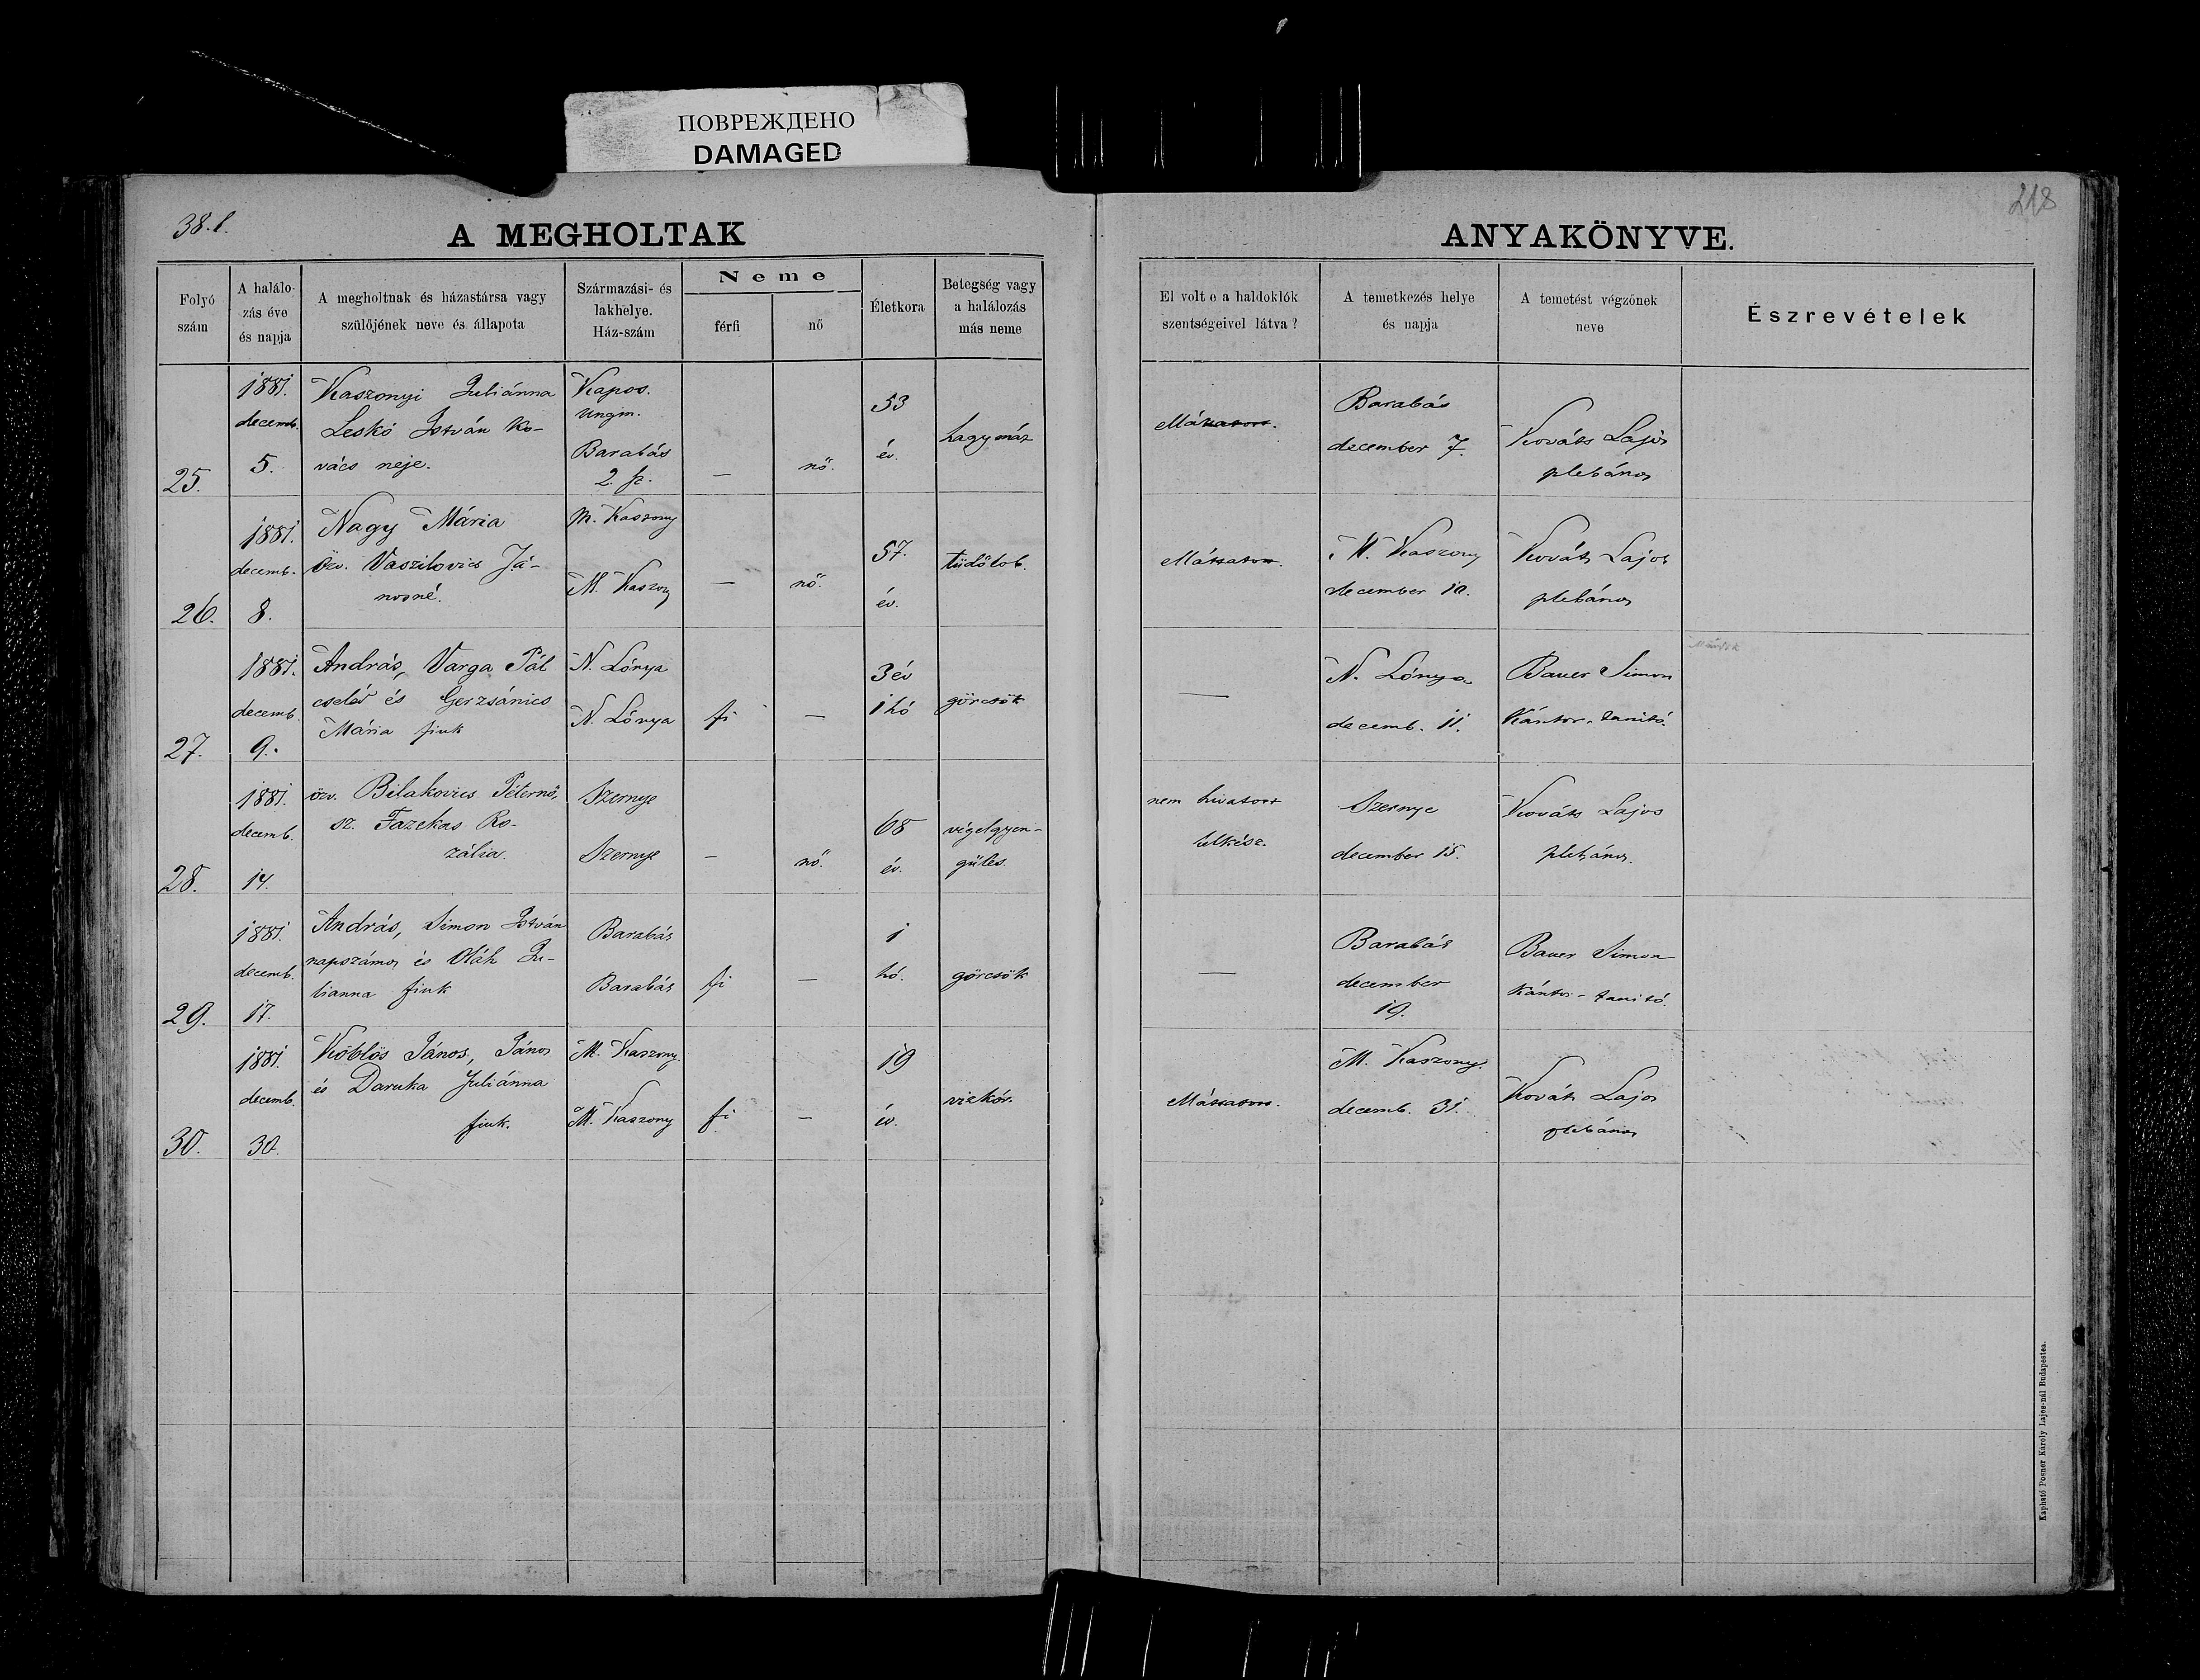 ПОВРЕЖДЕНО
DAMAGED
38. l.
218
A MEGHOLTAK
ANYAKÖNYVE.
Folyó
szám
A halálo-
zás éve
és napja
A megholtnak és házastársa vagy
szülőjének neve és állapota
Származási- és
lakhelye.
Ház-szám
Neme
férfi
nő
Életkora
Betegség vagy
a halálozás
más neme
El volt e a haldoklók
szentségeivel látva?
A temetkezés helye
és napja
A temetést végzőnek
neve
Észrevételek
25.
1881.
decemb.
5.
Kaszonyi Juliánna
Leskó István ko-
vács neje.
Kapos.
Ungm.
Barabás
2. sz.
—
nő.
53
év.
hagymáz
Elláttatott.
Barabás
december 7.
Kováts Lajos
plebános
26.
1881.
decemb.
8.
Nagy Mária
özv. Vaszilovics Já-
nosné.
M. Kaszony
M. Kaszony
—
nő.
57.
év.
tüdőlob.
Elláttatott.
M. Kaszony
december 10.
Kováts Lajos
plebános
27.
1881.
decemb.
9.
András, Varga Pál
cseléd és Gerzsánics
Mária fiuk
N. Lónya
N. Lónya
fi
—
3 év
1 hó
görcsök
—
N. Lónya
decemb. 11.
Bauer Simon
Kántor-tanitó.
28.
1881.
decemb.
14.
özv. Bilakovics Péterné,
sz. Fazekas Ro-
zália.
Szernye
Szernye
—
nő.
68
év.
végelgyen-
gülés.
nem hivatott
lelkész.
Szernye
december 15.
Kováts Lajos
plebános.
29.
1881.
decemb.
17.
András, Simon István
napszámos és Oláh Ju-
lianna fiuk
Barabás
Barabás
fi
—
1
hó.
görcsök
—
Barabás
december
19.
Bauer Simon
Kántor-tanitó.
30.
1881.
decemb.
30.
Köblös János, János
és Daruka Juliánna
fiuk.
M. Kaszony
M. Kaszony
fi
—
19
év.
vizkór.
Elláttatott.
M. Kaszony.
decemb. 31.
Kováts Lajos
plebános
Kapható Posner Károly Lajos-nál Budapesten.